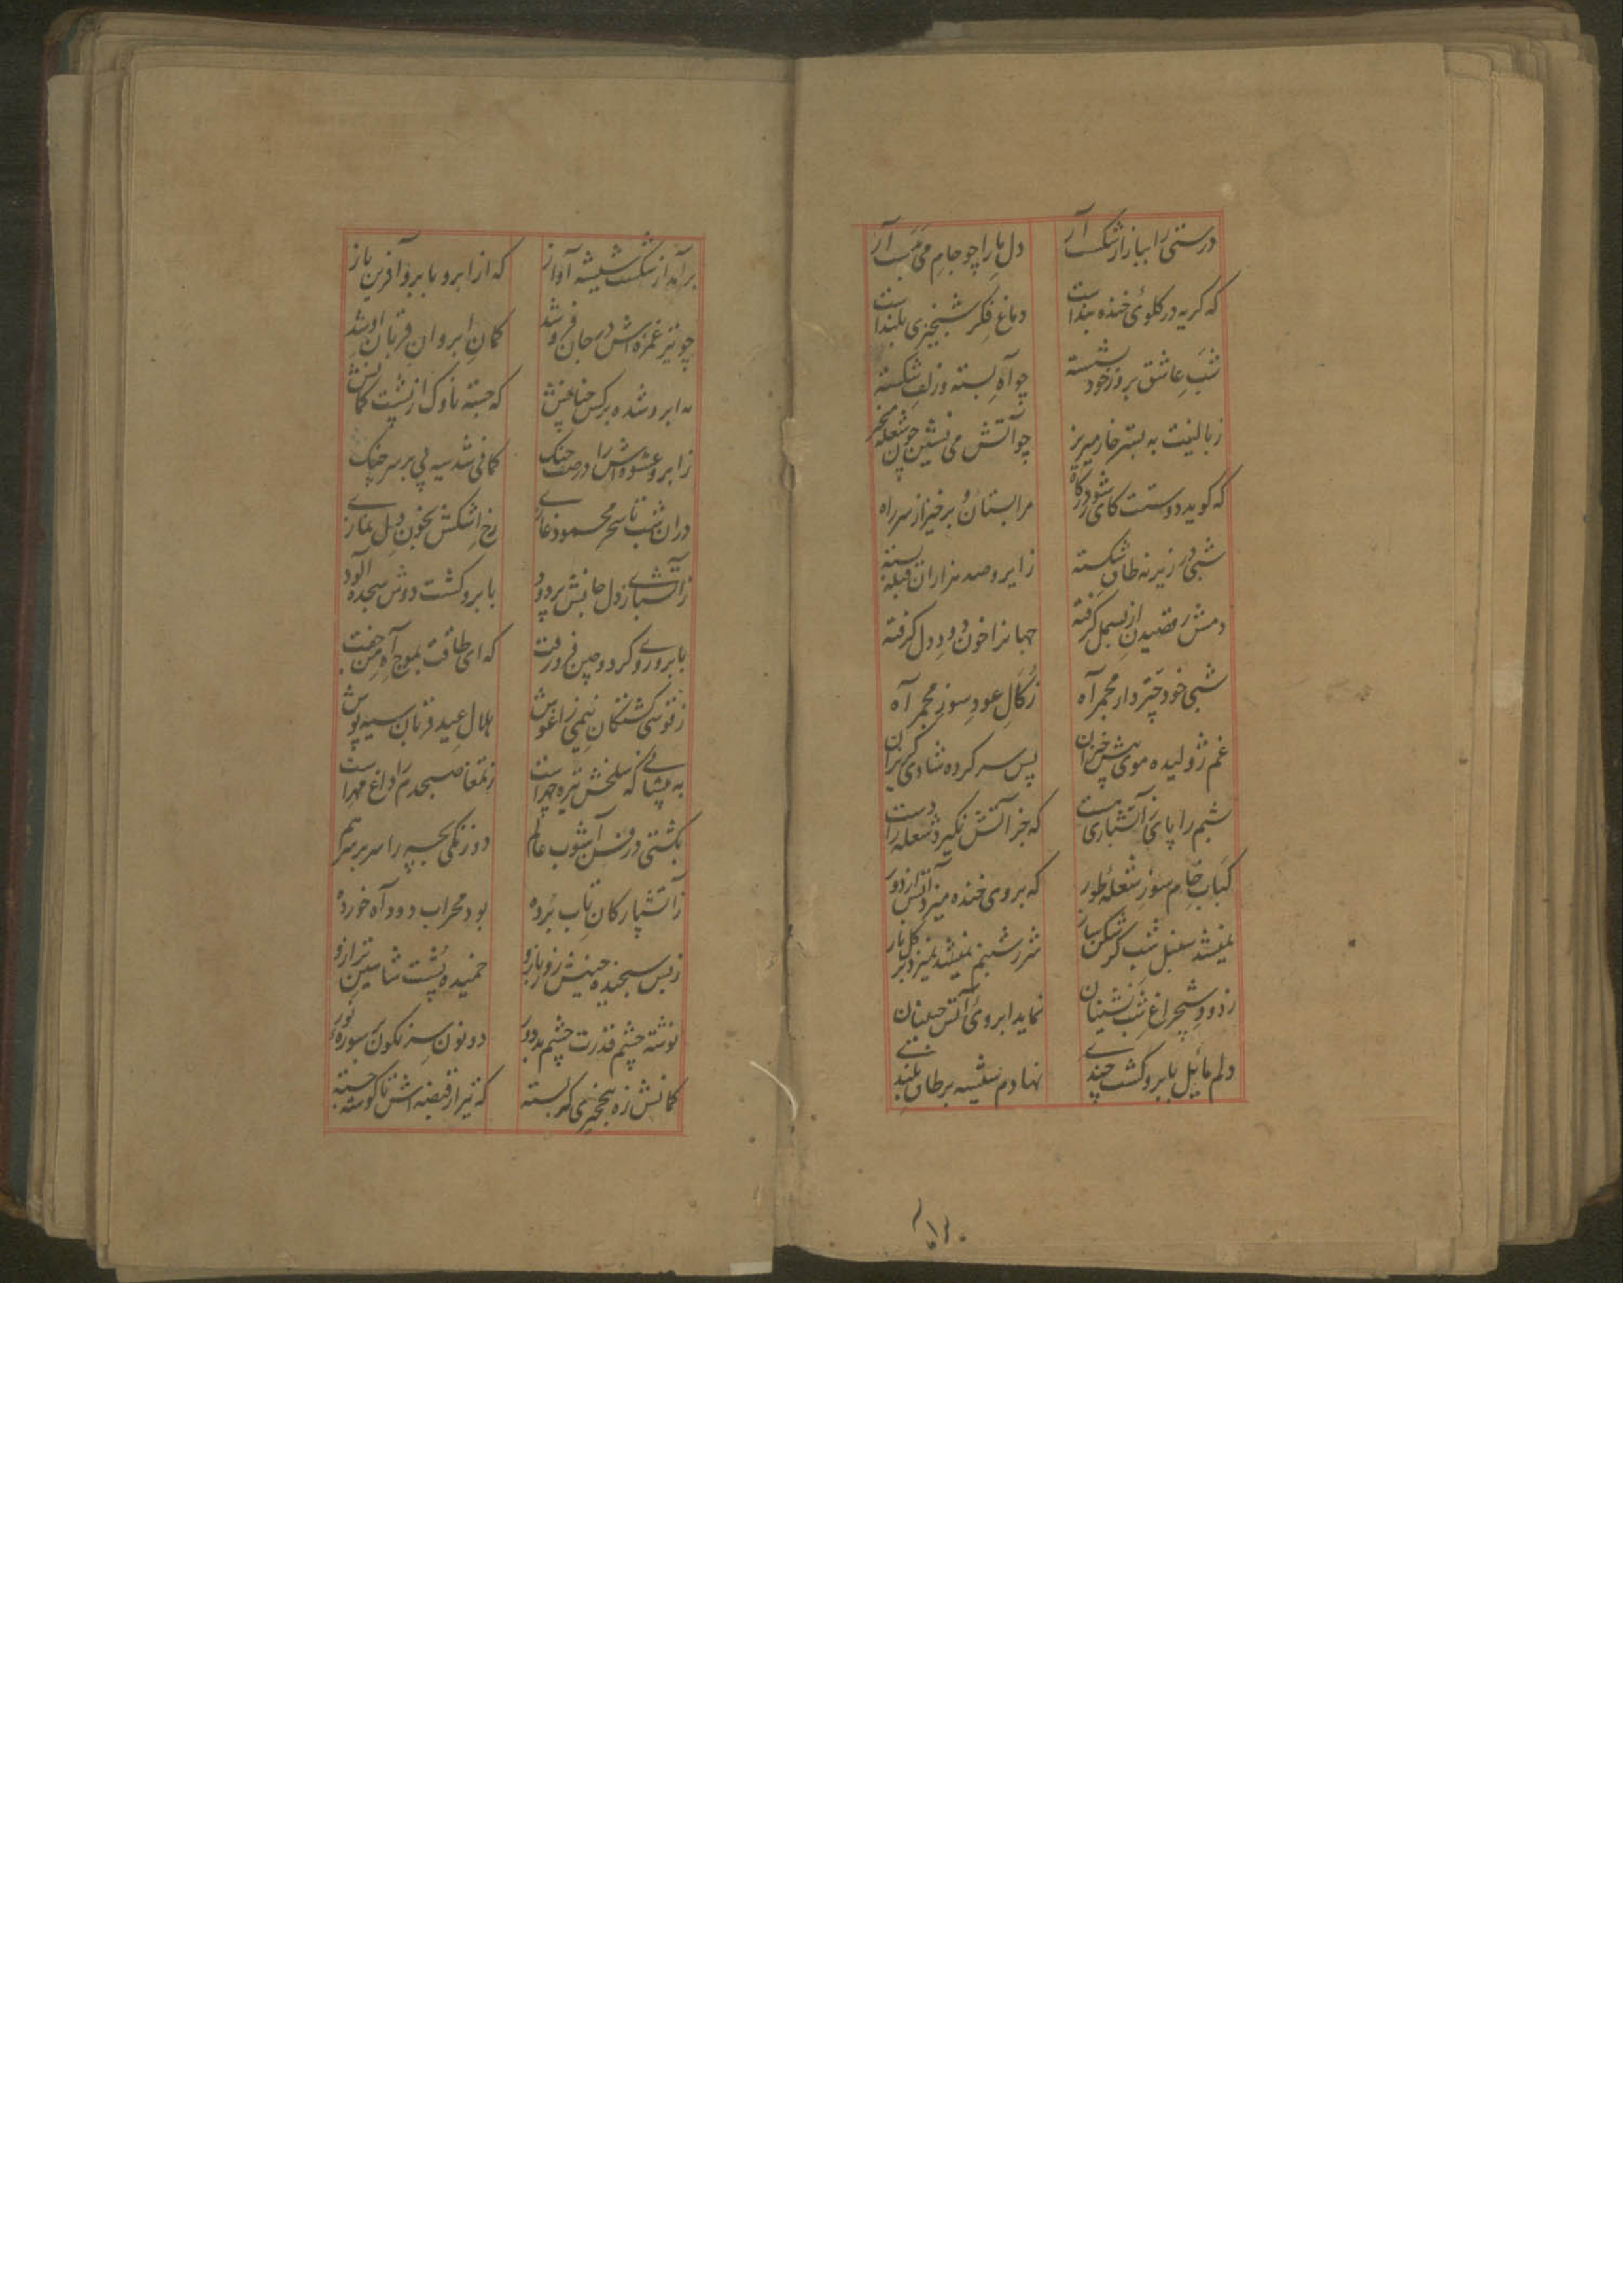 درستی را ببازار شکست آر دل یار را چو جام می بدست آر
که کریه در کلوی خنده بنداست دماغ فکر شبخیزی بلنداست
شب عاشق بروز خود نشسته چو آه بسته و زلف شکسته
ز بالینت به بستر خار میریز چو آتش می نشین چون شعله میخیز
که کوید دوست کای شو درکاه مرا بستان و برخیز از سر راه
شبی در زیر نه طاق شکسته ز ابرو صد هزاران قبله بسته
دمش رقصیدن از بسمل کرفته جهانرا خون و دود دل کرفته
شبی خود چتر دار مجمر آه زکال عود سوز مجمر آه
غم ژولیده موی پیش خیزان پس سر کرده شادی کریزان
شبم را پای زآتشباری بست که جز آتش نکیرد شعله را دست
کباب خام سوز شعله طور که بروی خنده میزد آتش از دور
نمیشد سنبل شب کر شکن ساز شرر شبنم نمیشد نمیزد بر کل
ز دود شبچراغ شب نشینان نماید ابروی آتش جبینان
دلم مائل بابرو کشت چندی نهادم شیشه بر طاق بلندی
برآمد از شکست شیشه آواز که از ابرو بابرو آفرین باز
چو تیر غمزه اش در جان فرو شد کمان ابروان قربان او شد
به ابرو شده برکس که جسته ناوک از پشت کمانش
ز ابرو عشوه اش را در صف جنک کمانی شد سیه پی بر سر جنک
دران شب تا سحر محمود غازی رخ اشکش بخون دل نمازی
زآتشباز دل جانش بر دود بابرو کشت دوش سجده آلود
بابروی رو کرد و چین فرو رفت که ای طاقت بموج آه من جفت
ز قوسی کشتکان نیمی ز اغوش هلال عید قربان سیه پوش
به پیشانی که سلخش تیره چهراست ز تمغا صبحدم را داغ مهراست
بکشتی در فن آشوب عالم دو زنکی بچه را سر بر سر هم
زآتشپارکان تاب برده بود محراب دود آه خورده
ز بس سنجنده جنبش ز و بازو خمیده پشت شاهین ترازو
نوشته چشم قدرت چشم بد دور دو نون سرنکون بر سوره نور
کمانش زه بخونریزی کمر بسته که تیر از قبضه اش تا کوشه جسته